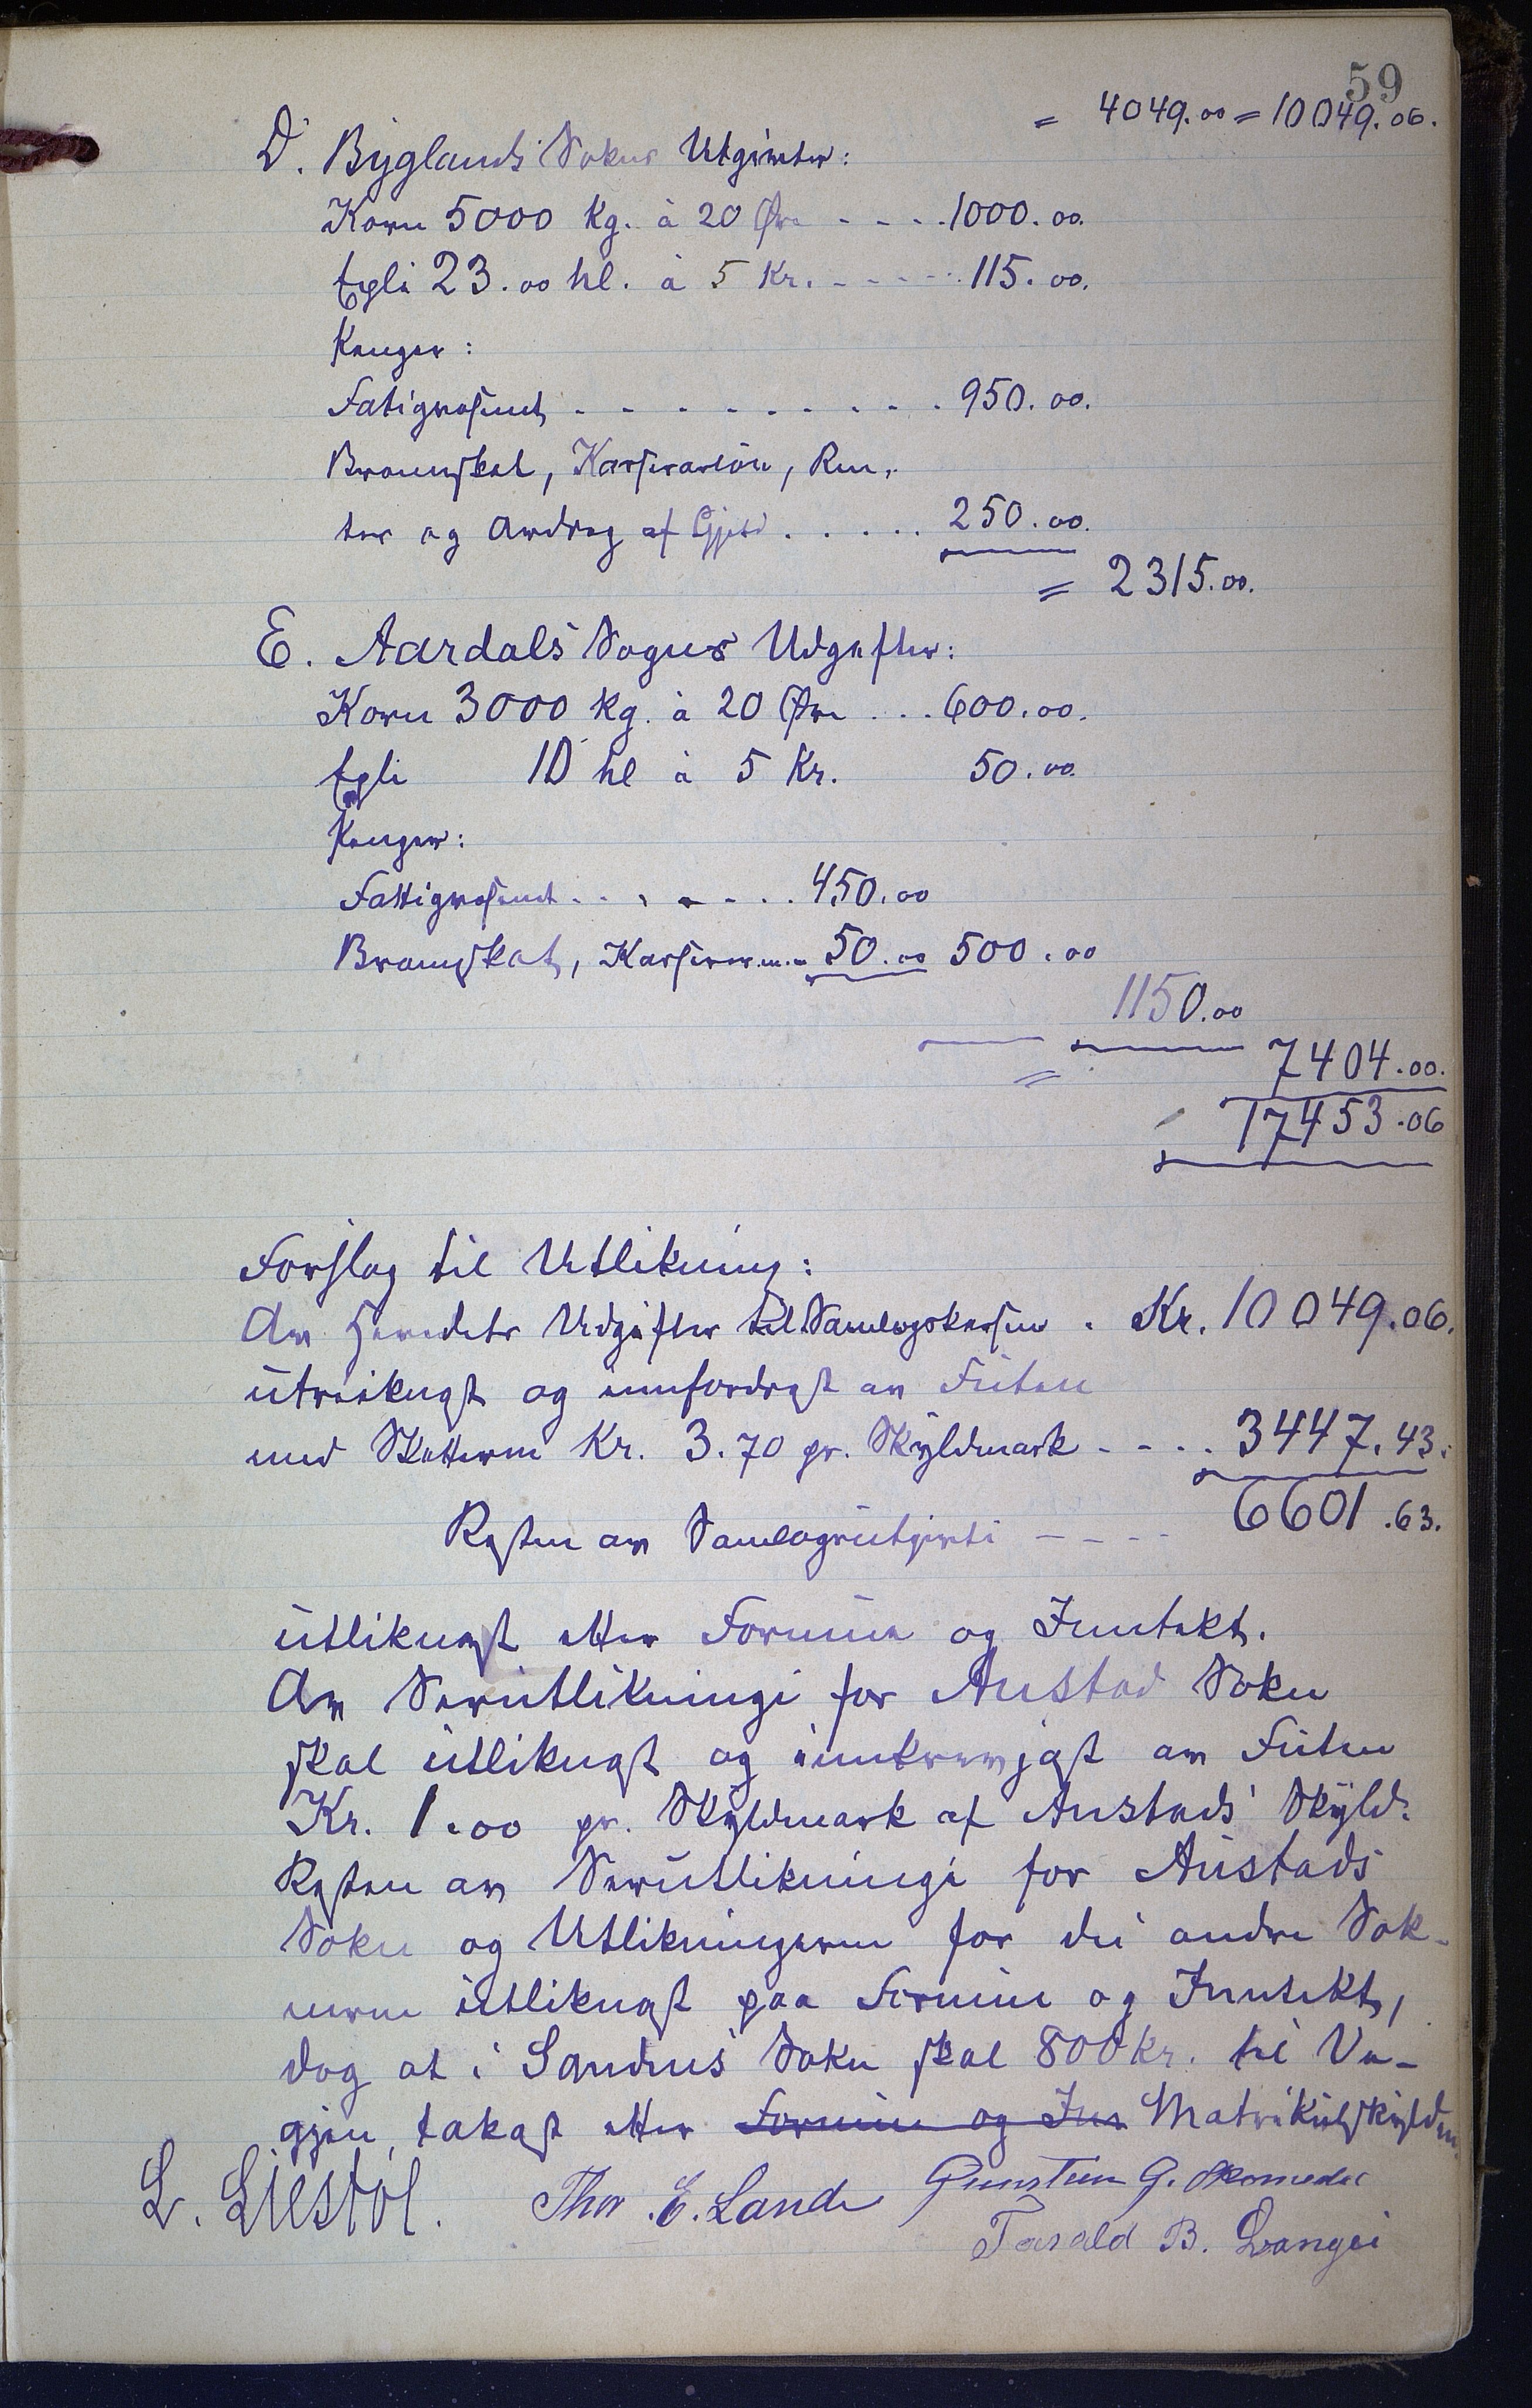 59
= 4049.00 = 10049.06.
D. Byglands Sokns Utgjirter:
Korn 5000 Kg. à 20 Øre - - - - 1000.00.
Egli 23.00 hl. à 5 Kr. - - - - - 115.00.
Pengar:
Fatigvæsenet - - - - - - - - - - 950.00.
Brannskat, Kasserarlön, Ren-
ter og Avdrag af Gjeld . . . . . 250.00.
= 2315.00.
E. Aardals Sogns Udgifter:
Korn 3000 Kg. à 20 Øre . . . 600.00.
Egli 10 hl à 5 Kr. 50.00
Pengar:
Fattigvæsenet . . . - - . . 450.00
Brannskat, Kasserer m.m. 50.00 500.00
1150.00
= 7404.00.
17453.06
Forslag til Utlikning:
Av Heredets Udgifter til Samlagskassen . Kr. 10049.06.
utrekngst og innfordrast av Futen
med Skatteren Kr. 3.70 pr. Skyldmark - - - . 3447.43.
Resten av Samlagsutgjirti - - - - 6601.63.
utliknast etter Formue og Inntekt.
Av Serutlikningi for Austad Sokn
skal utliknast og innkrevjast av Futen
Kr. 1.00 pr. Skyldmark af Austads Skyld.
Resten av Serutlikningi for Austads
Sokn og Utlikningarne for dei andre Sok-
nerne utliknast paa Formue og Inntekt,
dog at i Sandnes Sokn skal 800 kr. til Ve-
gjen takast etter Formue og Inn Matrikulskylden.
L. Liestöl. Thor . E. Lande Gunstein G. Skomedal
Tarald B. Langei